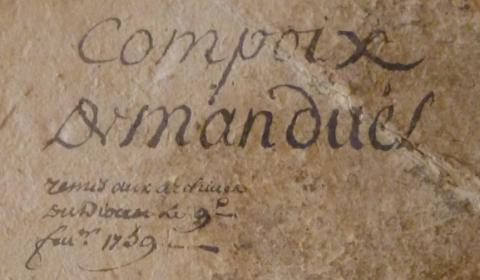 Compoix
Darmandués
remis aux archives
du Diocese Le 9e
feur. 1759